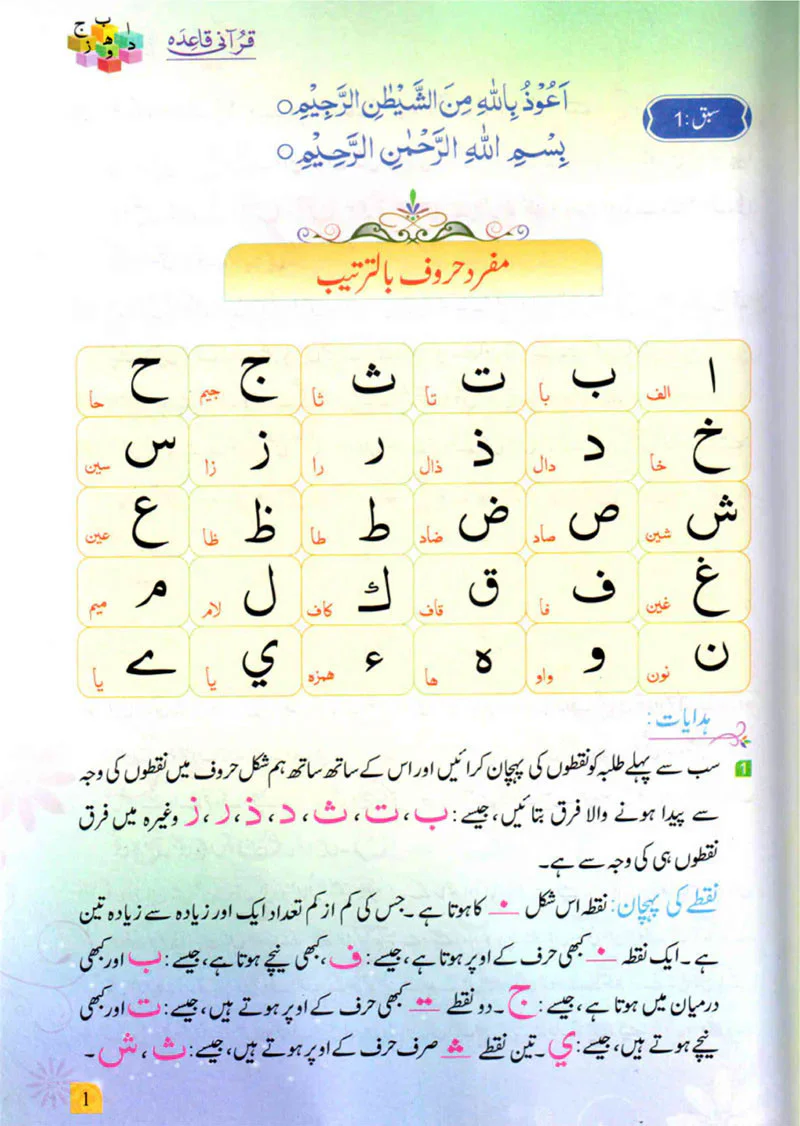 قرآنی قاعدہ
ا ب ج د ه و ز
سبق: 1
اَعُوْذُ بِاللّٰهِ مِنَ الشَّيْطٰنِ الرَّجِيْمِ ○
بِسْمِ اللّٰهِ الرَّحْمٰنِ الرَّحِيْمِ ○
مفرد حروف بالترتیب
ا الف ب با ت تا ث ثا ج جیم ح حا
خ خا د دال ذ ذال ر را ز زا س سین
ش شین ص صاد ض ضاد ط طا ظ ظا ع عین
غ غین ف فا ق قاف ك کاف ل لام م میم
ن نون و واو ه ها ء همزه ي یا ے یا
ہدایات:
1 سب سے پہلے طلبہ کو نقطوں کی پہچان کرائیں اور اس کے ساتھ ساتھ ہم شکل حروف میں نقطوں کی وجہ
سے پیدا ہونے والا فرق بتائیں، جیسے: ب، ت، ث، د، ذ، ر، ز وغیرہ میں فرق
نقطوں ہی کی وجہ سے ہے۔
نقطے کی پہچان: نقطہ اس شکل کا ہوتا ہے۔ جس کی کم از کم تعداد ایک اور زیادہ سے زیادہ تین
ہے۔ ایک نقطہ کبھی حرف کے اوپر ہوتا ہے، جیسے: ف، کبھی نیچے ہوتا ہے، جیسے: ب اور کبھی
درمیان میں ہوتا ہے، جیسے: ج۔ دو نقطے کبھی حرف کے اوپر ہوتے ہیں، جیسے: ت اور کبھی
نیچے ہوتے ہیں، جیسے: ي۔ تین نقطے صرف حرف کے اوپر ہوتے ہیں، جیسے: ث، ش۔
1